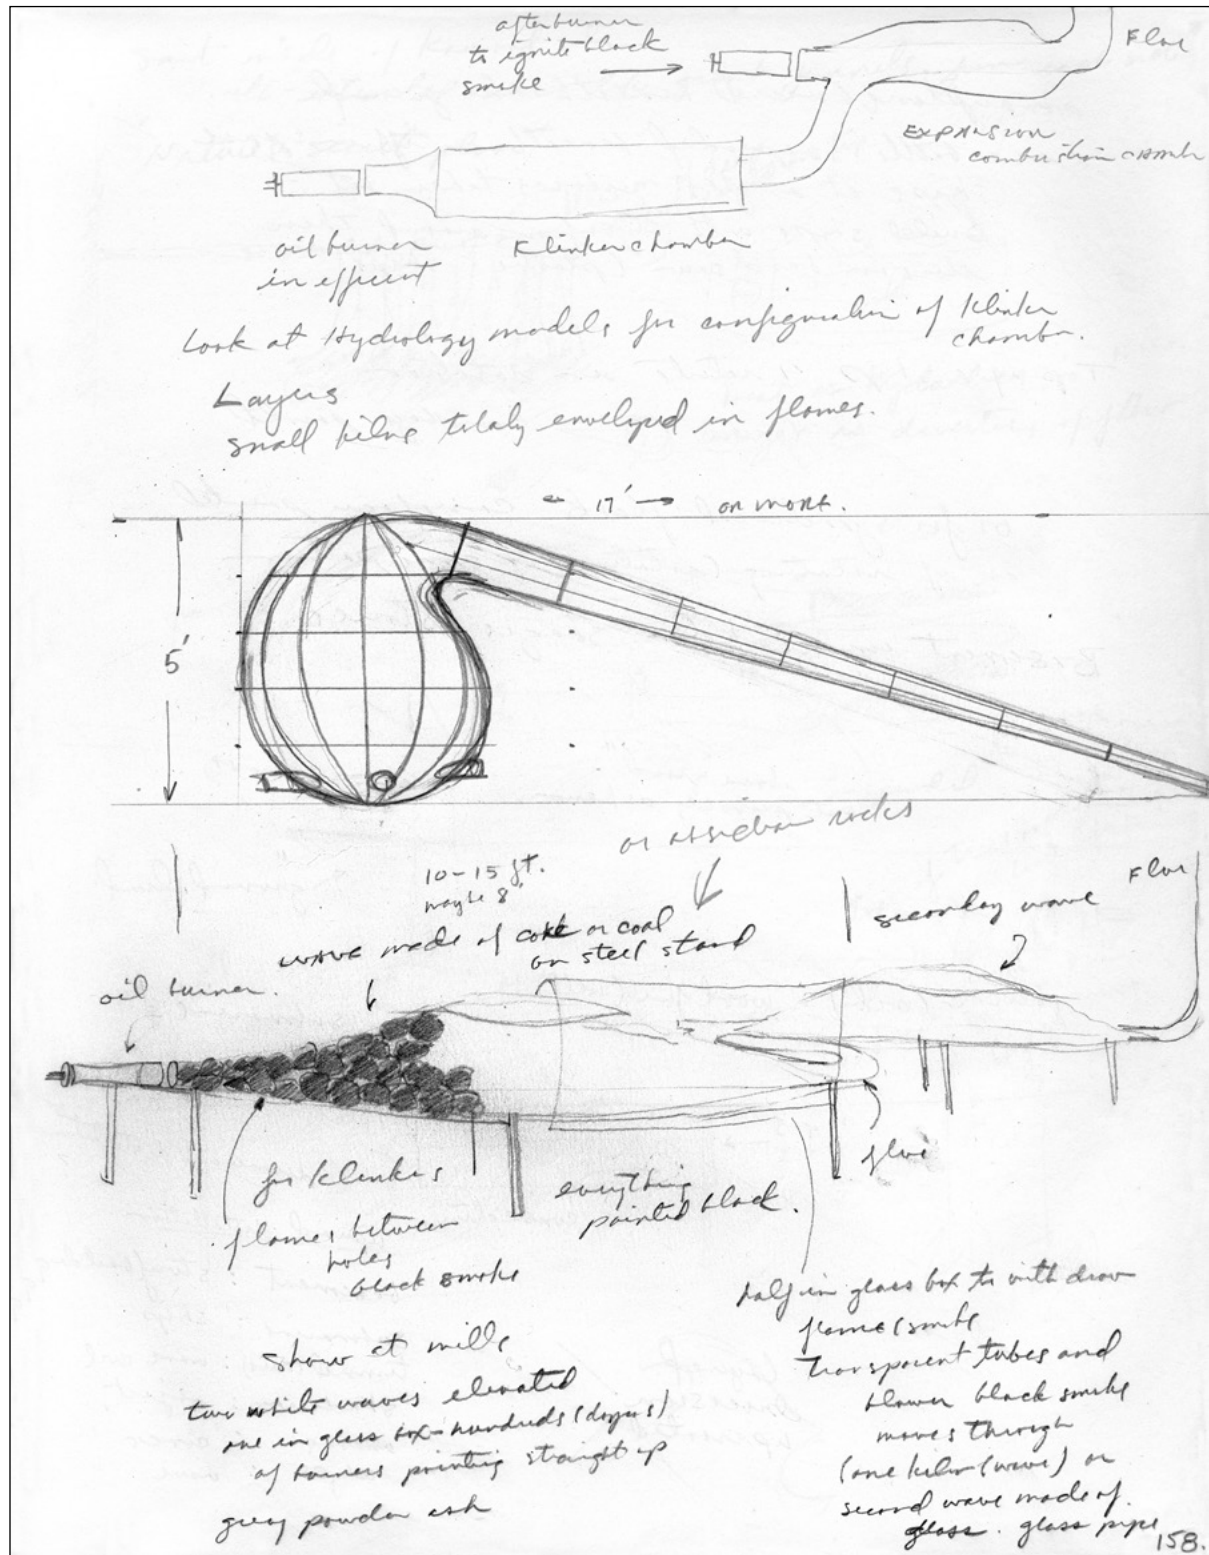 afterburner
to ignite black
smoke
Flue
EXPANSION
combustion chamb
oil burner
in efficent
Klinker chamber
Look at Hydrology models for configuration of Klinker
chamber.
Layers
small kilns totaly enveloped in flames.
← 17' → or more.
5'
or obsidian rocks
10-15 ft.
maybe 8'
wave made of coke or coal
on steel stand
secondary wave
Flue
oil burner.
flue
for klinkers
flames between
holes
black smoke
everything
painted black.
half in glass box to with draw
flame/smoke
Transparent tubes and
blower black smoke
moves through
(one kiln (wave) or
second wave made of
glass. glass pipe
show at mills
two white waves elevated
one in glass box-hundreds (dozens)
of burners pointing straight up
grey powder ash
158.